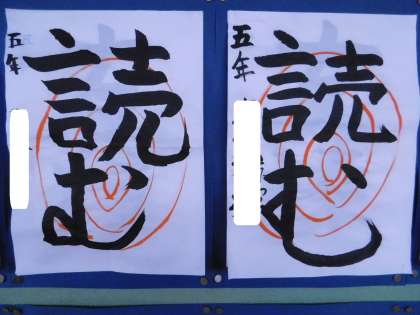 読む
五年
読む
五年